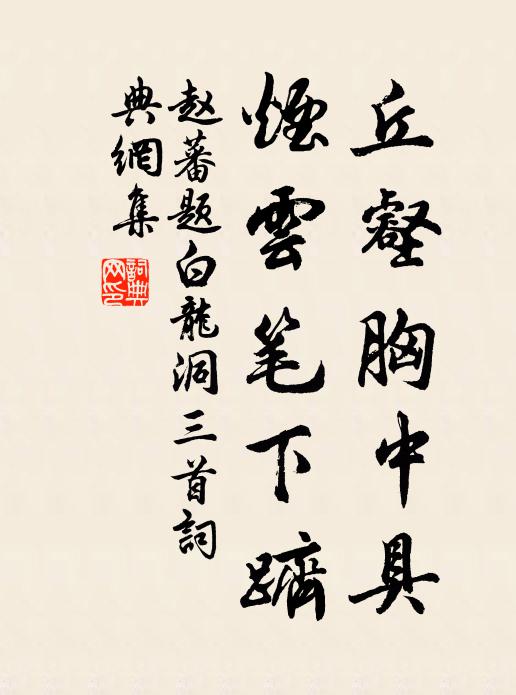 丘壑胸中具
煙雲笔下躋
赵蕃题白龍洞三首詞
典網集
詞典
网印